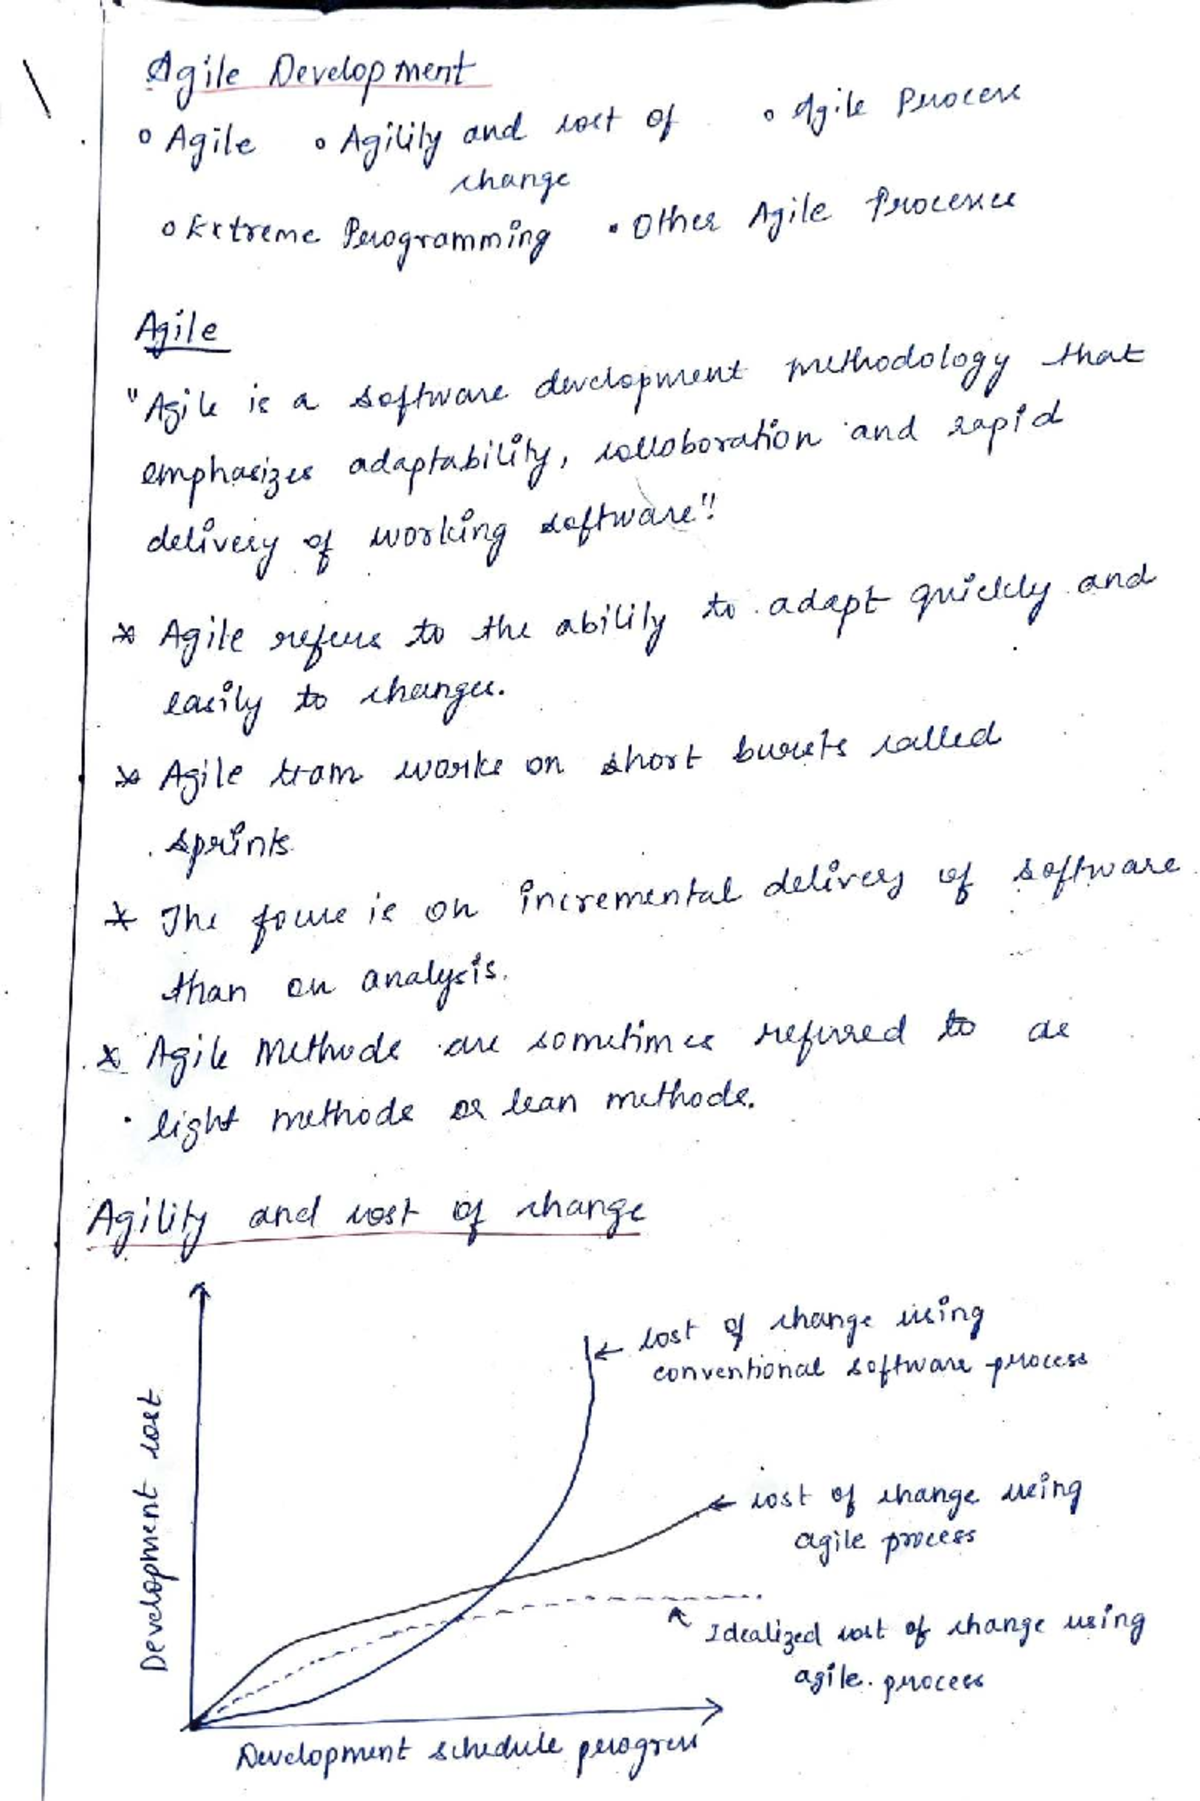 Agile Development
◦ Agile ◦ Agility and cost of change ◦ Agile Process
◦ Extreme Programming • Other Agile Processes
Agile
"Agile is a software development methodology that
emphasizes adaptability, colloboration and rapid
delivery of working software"!
* Agile refers to the ability to adapt quickly and
easily to changes.
* Agile team works on short bursts called
sprints
* The focus is on incremental delivery of software
than on analysis.
* Agile Methods are sometimes referred to as
light methods or lean methods.
Agility and cost of change
Development cost
cost of change using
conventional software process
cost of change using
agile process
Idealized cost of change using
agile process
Development schedule progress